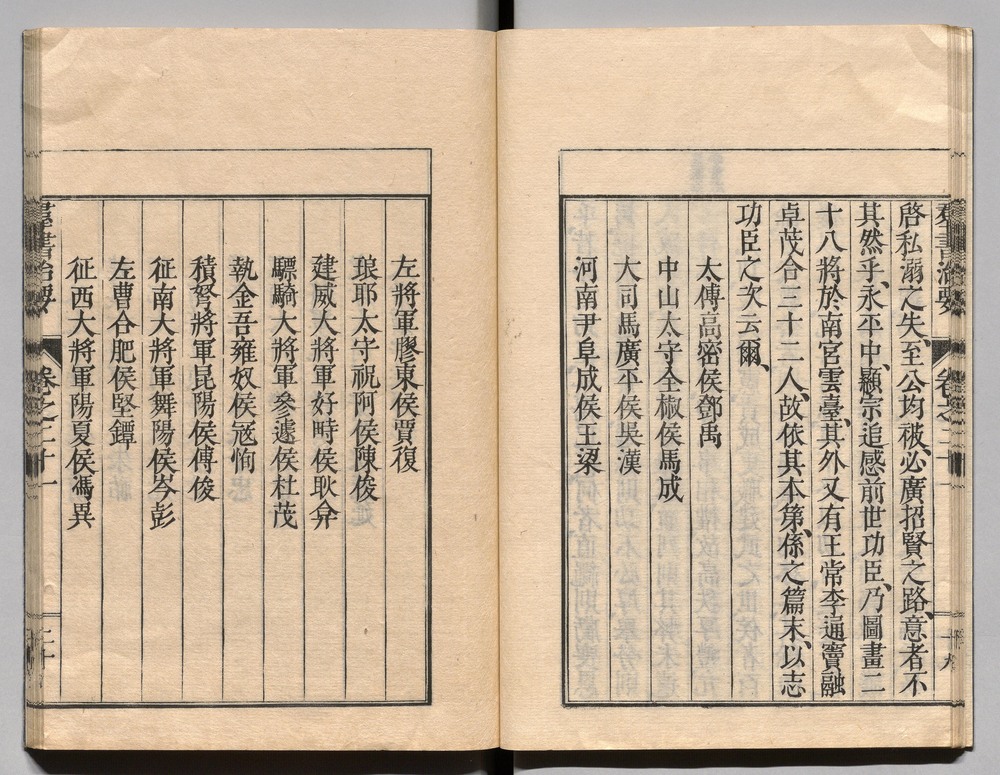 羣書治要 卷之二十一 十九
啓私溺之失、至公均被、必廣招賢之路、意者不
其然乎、永平中、顯宗追感前世功臣、乃圖畫二
十八將於南宮雲臺、其外又有王常李通竇融
卓茂合三十二人、故依其本第、係之篇末、以志
功臣之次云爾、
太傅高密侯鄧禹
中山太守全椒侯馬成
大司馬廣平侯吳漢
河南尹阜成侯王梁
左將軍膠東侯賈復
琅耶太守祝阿侯陳俊
建威大將軍好畤侯耿弇
驃騎大將軍參遽侯杜茂
執金吾雍奴侯寇恂
積弩將軍昆陽侯傅俊
征南大將軍舞陽侯岑彭
左曹合肥侯堅鐔
征西大將軍陽夏侯馮異
羣書治要 卷之二十一 二十